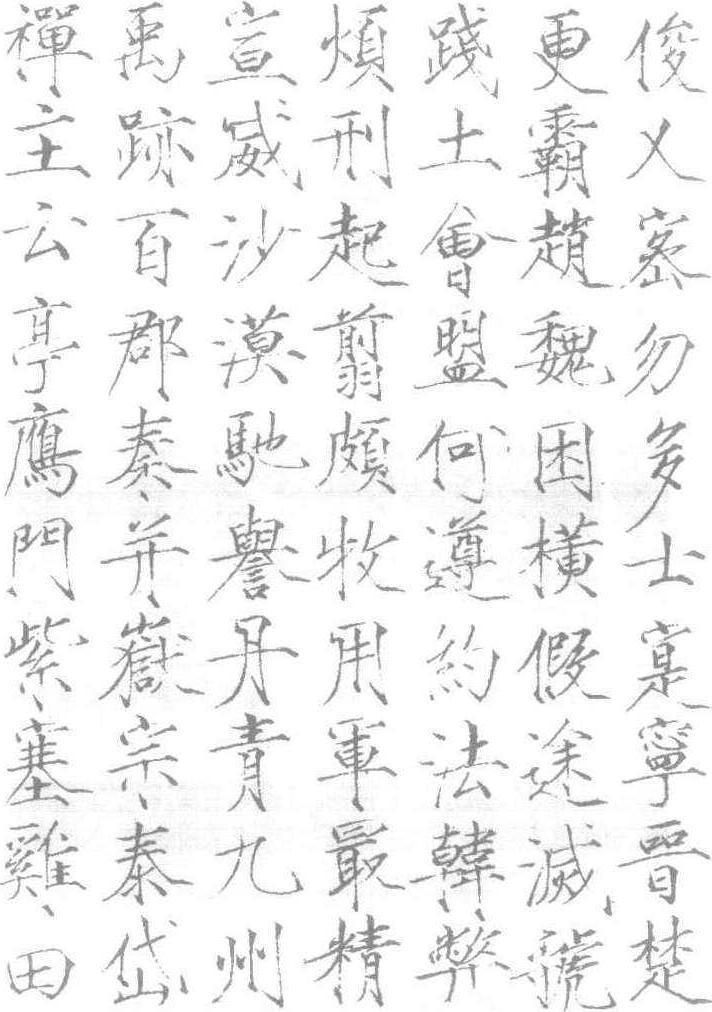 俊乂密勿多士寔寧晉楚
更霸趙魏困橫假途滅虢
踐土會盟何遵約法韓弊
煩刑起翦頗牧用軍最精
宣威沙漠馳譽丹青九州
禹跡百郡秦并嶽宗泰岱
禪主云亭鴈門紫塞雞田